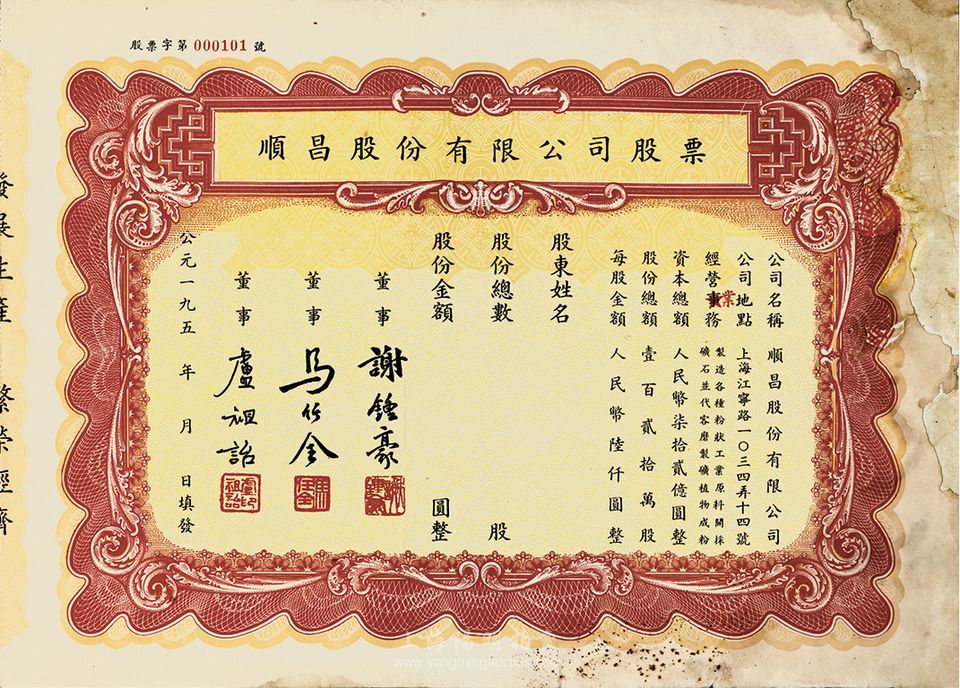 股票字第 000101 號
順昌股份有限公司股票
公司名稱 順昌股份有限公司
公司地點 上海江寧路一〇三四弄十四號
經營業務 製造各種粉狀工業原料開採
礦石並代客磨製礦植物成粉
資本總額 人民幣柒拾貳億圓整
股份總額 壹百貳拾萬股
每股金額 人民幣陸仟圓整
股東姓名
股份總數 股
股份金額 圓整
董事 謝鍾豪
董事 馬竹全
董事 盧祖詒
公元一九五 年 月 日填發
發展生產 繁榮經濟
www.yangmingauction.com